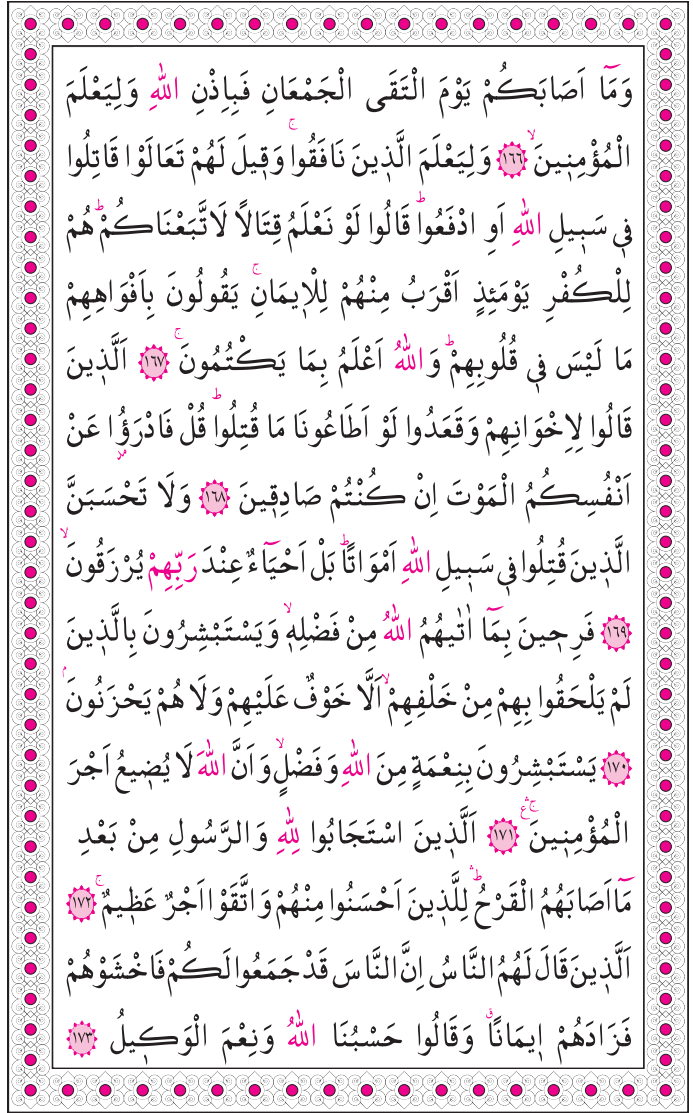 وَمَٓا اَصَابَكُمْ يَوْمَ الْتَقَى الْجَمْعَانِ فَبِاِذْنِ اللّٰهِ وَلِيَعْلَمَ
الْمُؤْمِن۪ينَۙ ﴿١٦٦﴾ وَلِيَعْلَمَ الَّذ۪ينَ نَافَقُواۚ وَق۪يلَ لَهُمْ تَعَالَوْا قَاتِلُوا
ف۪ي سَب۪يلِ اللّٰهِ اَوِ ادْفَعُواۜ قَالُوا لَوْ نَعْلَمُ قِتَالًا لَاتَّبَعْنَاكُمْۜ هُمْ
لِلْكُفْرِ يَوْمَئِذٍ اَقْرَبُ مِنْهُمْ لِلْا۪يمَانِۚ يَقُولُونَ بِاَفْوَاهِهِمْ
مَا لَيْسَ ف۪ي قُلُوبِهِمْۜ وَاللّٰهُ اَعْلَمُ بِمَا يَكْتُمُونَۚ ﴿١٦٧﴾ اَلَّذ۪ينَ
قَالُوا لِاِخْوَانِهِمْ وَقَعَدُوا لَوْ اَطَاعُونَا مَا قُتِلُواۜ قُلْ فَادْرَؤُ۫ا عَنْ
اَنْفُسِكُمُ الْمَوْتَ اِنْ كُنْتُمْ صَادِق۪ينَ ﴿١٦٨﴾ وَلَا تَحْسَبَنَّ
الَّذ۪ينَ قُتِلُوا ف۪ي سَب۪يلِ اللّٰهِ اَمْوَاتًاۜ بَلْ اَحْيَٓاءٌ عِنْدَ رَبِّهِمْ يُرْزَقُونَۙ
﴿١٦٩﴾ فَرِح۪ينَ بِمَٓا اٰتٰيهُمُ اللّٰهُ مِنْ فَضْلِه۪ۙ وَيَسْتَبْشِرُونَ بِالَّذ۪ينَ
لَمْ يَلْحَقُوا بِهِمْ مِنْ خَلْفِهِمْۙ اَلَّا خَوْفٌ عَلَيْهِمْ وَلَا هُمْ يَحْزَنُونَۢ
﴿١٧٠﴾ يَسْتَبْشِرُونَ بِنِعْمَةٍ مِنَ اللّٰهِ وَفَضْلٍۙ وَاَنَّ اللّٰهَ لَا يُض۪يعُ اَجْرَ
الْمُؤْمِن۪ينَۚۛ ﴿١٧١﴾ اَلَّذ۪ينَ اسْتَجَابُوا لِلّٰهِ وَالرَّسُولِ مِنْ بَعْدِ
مَٓا اَصَابَهُمُ الْقَرْحُۜۛ لِلَّذ۪ينَ اَحْسَنُوا مِنْهُمْ وَاتَّقَوْا اَجْرٌ عَظ۪يمٌۚ ﴿١٧٢﴾
اَلَّذ۪ينَ قَالَ لَهُمُ النَّاسُ اِنَّ النَّاسَ قَدْ جَمَعُوا لَكُمْ فَاخْشَوْهُمْ
فَزَادَهُمْ ا۪يمَانًاۗ وَقَالُوا حَسْبُنَا اللّٰهُ وَنِعْمَ الْوَك۪يلُ ﴿١٧٣﴾